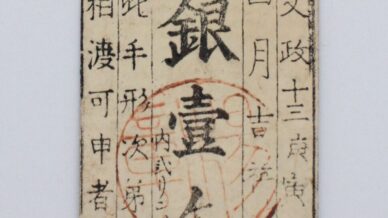 文政十三庚寅
四月吉
銀壹
内弐リ
此手形次第
相渡可申者